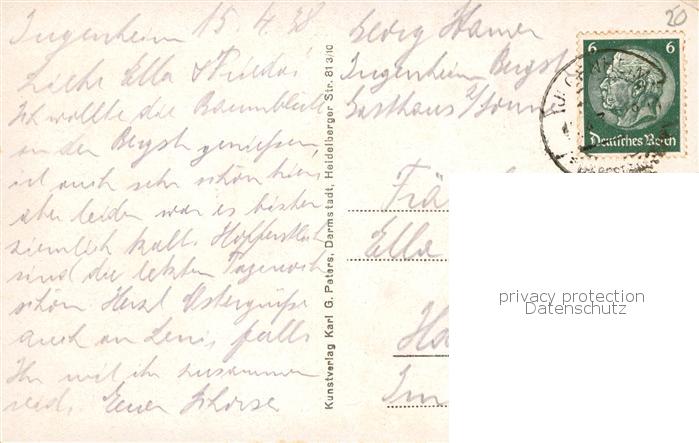 Jugenheim 15.4.38
Liebe Ella & Frieda!
Ich wollte die Baumblüte
an der Bergstr genießen,
ist auch sehr schön hier,
aber leider war es bisher
ziemlich kalt. Hoffentlich
sind die letzten Tage noch
schön Herzl Ostergrüße
auch an Leni, falls
Ihr mit ihr zusammen
seid. Euer Schorse
Kunstverlag Karl G. Peters, Darmstadt, Heidelberger Str. 81 3/10
Georg Hamer
Jugenheim Bergstr
Gasthaus z/Sonne
20
6 6
Deutsches Reich
Ella
privacy protection
Datenschutz